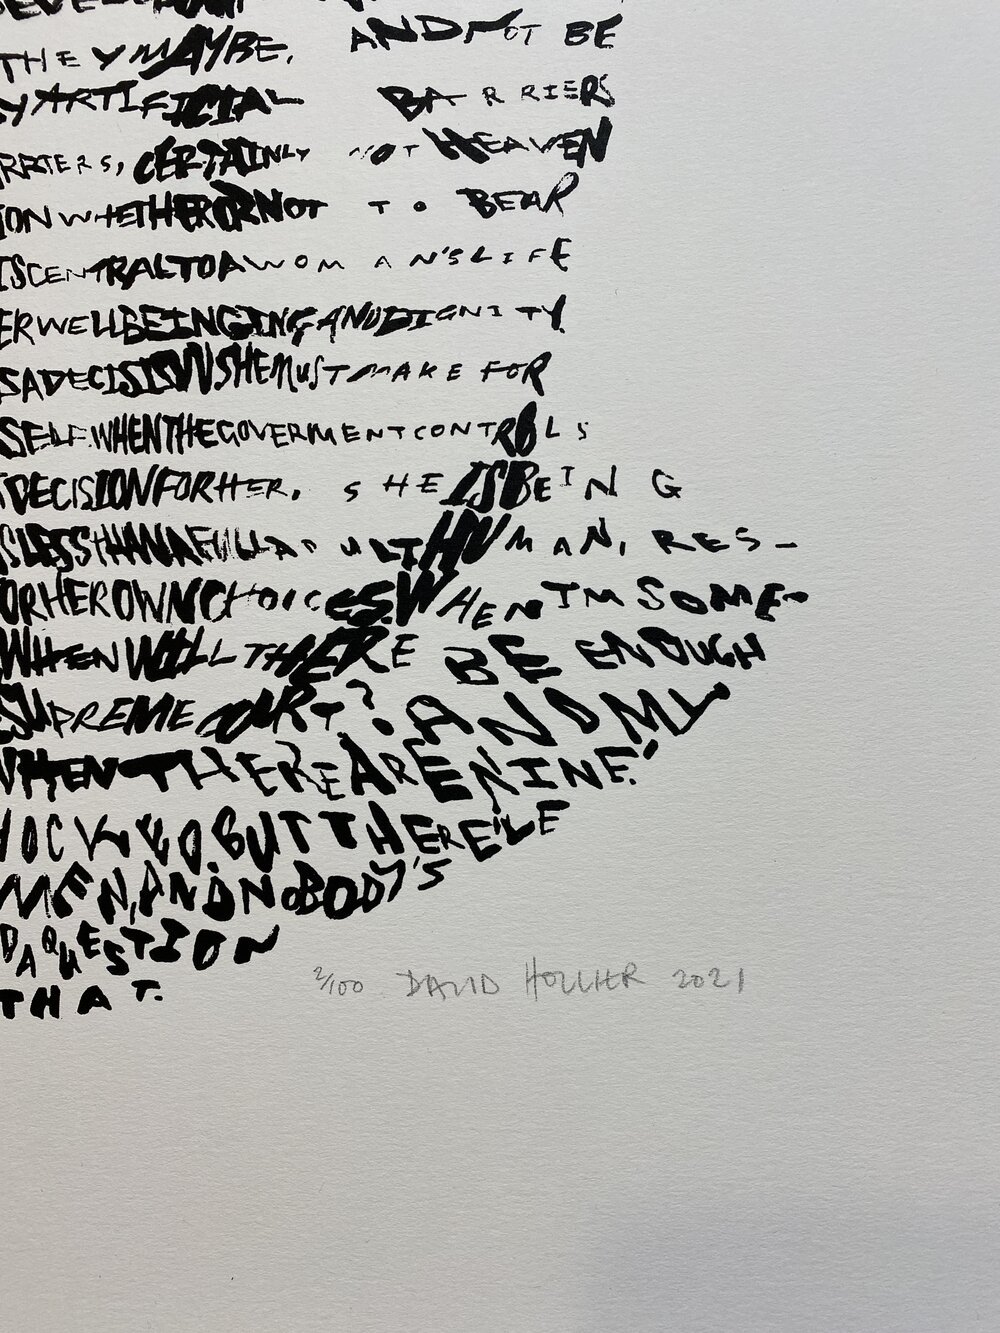 THEY MAYBE, AND NOT BE
Y ARTIFICIAL BARRIERS
RRIERS, CERTAINLY NOT HEAVEN
ION WHETHER OR NOT TO BEAR
IS CENTRAL TO A WOMAN'S LIFE
ER WELLBEINGING AND DIGNITY
S A DECISION SHE MUST MAKE FOR
SELF. WHEN THE GOVERNMENT CONTROLS
DECISION FOR HER, SHE IS BEING
S LESS THAN A FULL ADULT HUMAN, RES-
OR HER OWN CHOICES. WHEN I'M SOME-
WHEN WILL THERE BE ENOUGH
SUPREME COURT? AND MY
WHEN THERE ARE NINE.'
HOCKED. BUT THERE'LE
MEN, AND NOBODY'S
D A QUESTION
THAT.
2/100 DAVID HOLLIER 2021